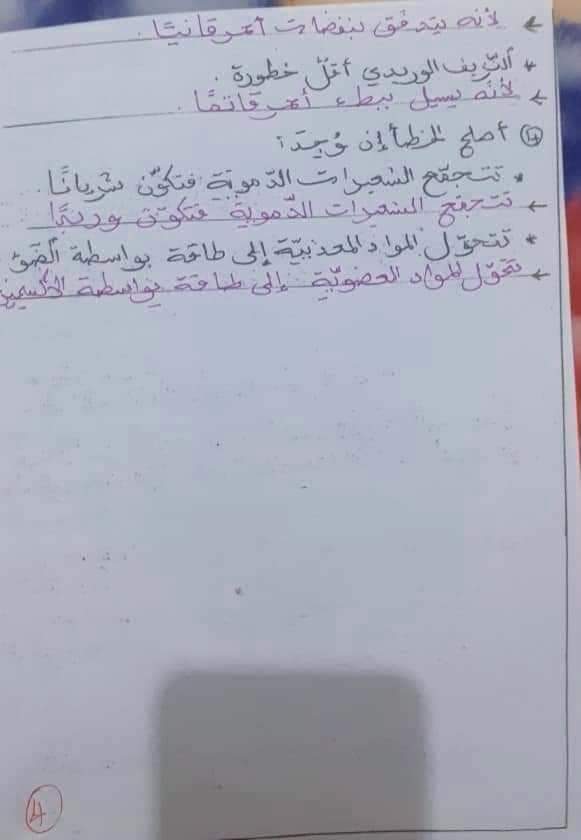 ← لأنه يتدفق بنفضات أحمر قانيًّا.
* النّزيف الوريدي أقلّ خطورة.
← لأنّه يسيل ببطء أحمر قاتمًا.
④ أصلح الخطأ إن وُجد:
* تتجمّع الشعيرات الدّمويّة فتكوّن شريانًا.
← تتجمّع الشعيرات الدّمويّة فتكوّن وريدًا
* تتحوّل المواد المعدنيّة إلى طاقة بواسطة الضّوء
← تتحوّل المواد العضويّة إلى طاقة بواسطة الأكسجين
4